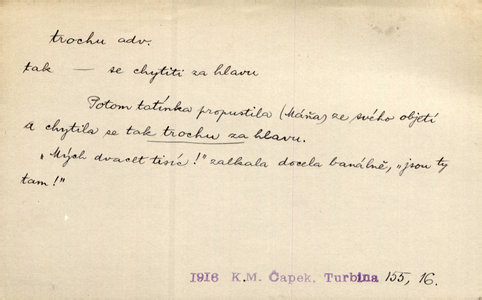 trochu adv.
tak — se chytiti za hlavu
Potom tatínka propustila (Máňa) ze svého objetí
a chytila se tak trochu za hlavu.
„Mých dvacet tisíc!" zalkala docela banálně, „jsou ty
tam!"
1916 K.M. Čapek. Turbina 155, 16.